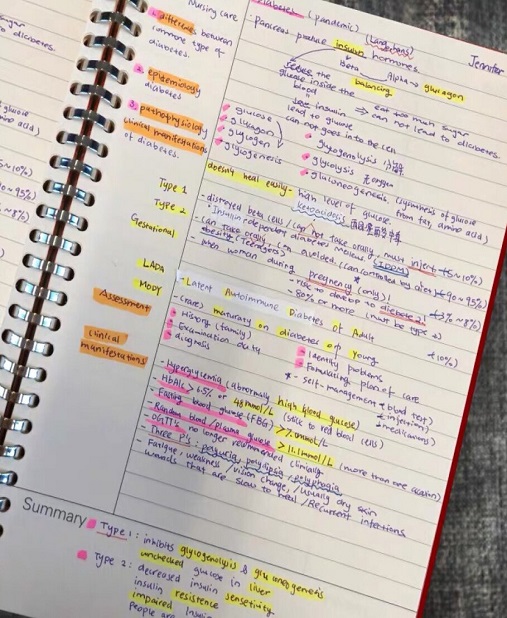 Nursing care
1. difference between
common type of
diabetes.
2. epidemiology
diabetes
3. pathophysiology
clinical manifestations
of diabetes.
Type 1
Type 2
Gestational
LADA
MODY
Assessment
clinical
manifestations
Diabetes (pandemic)
Jennifer
- Pancreas produce insulin hormones.
Beta
Alpha → glucagon
balancing
glucose inside the
blood
insulin
eat too much sugar
lead to glucose
can not lead to diabetes.
can not goes into the cell
glucose
glucagon
glycogen
glycogenesis
glycogenolysis
glycolysis
gluconeogenesis (synthesis of glucose
from fat, amino acid)
doesn't heal easily - high level of glucose.
ketoacidosis
- destroyed beta cells / can not take orally, must inject (5~10%)
Insulin-dependent diabetes (IDDM)
- can take orally, can avoided. (can controlled by diet) (90~95%)
obesity (teenagers)
- when woman during pregnancy (only)!
- risk to develop to diabete 2! (3%~8%)
80% or more (must be type 2)
- Latent Autoimmune Diabetes of Adult
- (rare) maturaty on diabetes of young (10%)
History (family)
Examination
diagnosis
Identify problems
Formulating plan of care
* - self-management * blood test)
* injection)
* medications)
- Hyperglycemia (abnormally high blood glucose)
- HbA1c > 6.5% or 48mmol/L (stick to red blood cells)
- Fasting blood glucose (FBG) > 7.0mmol/L
- Random blood/plasma glucose > 11.1mmol/L (more than one occasion)
- OGTTs no longer recommended clinically
- Three P's: polyuria, polydipsia, polyphagia
- Fatigue, weakness / vision change, / usually dry skin
wounds that are slow to heal / Recurrent infections
Summary
Type 1: inhibits glycogenolysis & gluconeogenesis
unchecked glucose in liver
Type 2: decreased insulin sensetivity
insulin resistence
impaired insulin
people are